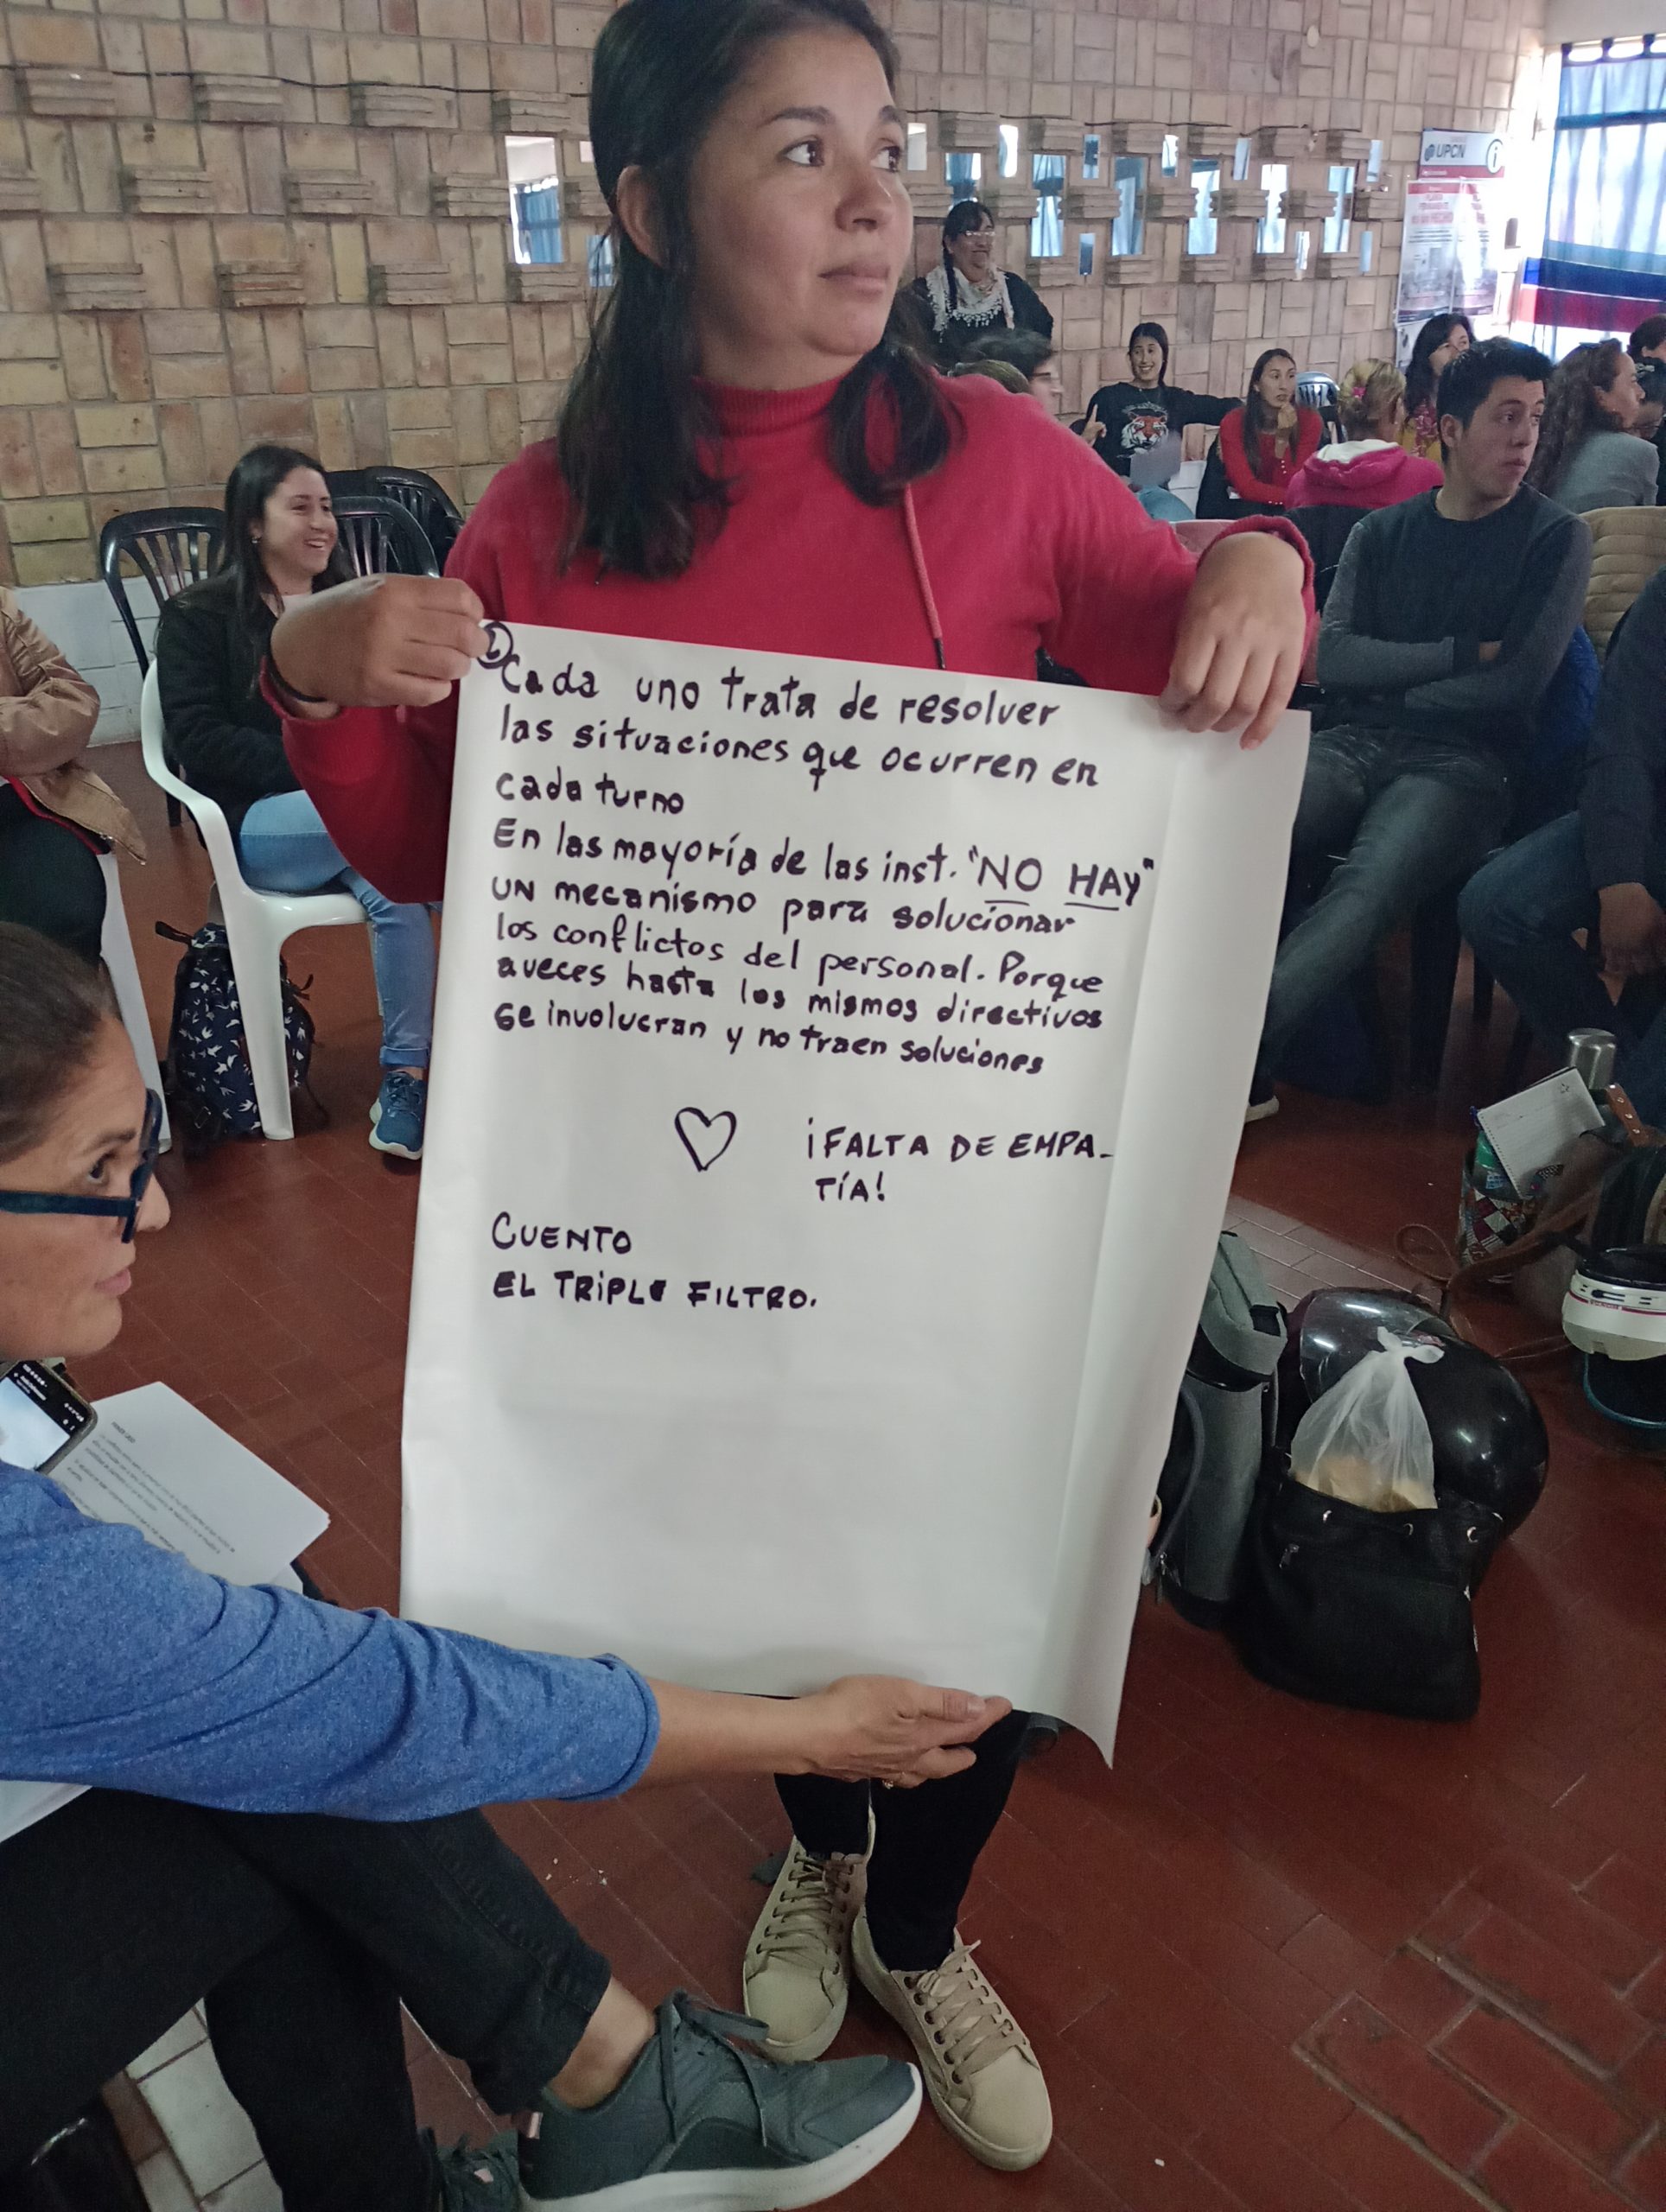 ①
Cada uno trata de resolver
las situaciones que ocurren en
cada turno
En las mayoría de las inst. "NO HAY"
UN mecanismo para solucionar
los conflictos del personal. Porque
aveces hasta los mismos directivos
se involucran y no traen soluciones
¡FALTA DE EMPA-
TÍA!
CUENTO
EL TRIPLE FILTRO.
UPCN
i